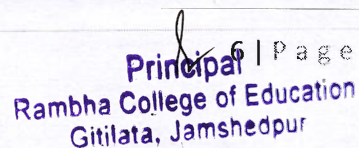 6 | P a g e
Principal
Rambha College of Education
Gitilata, Jamshedpur